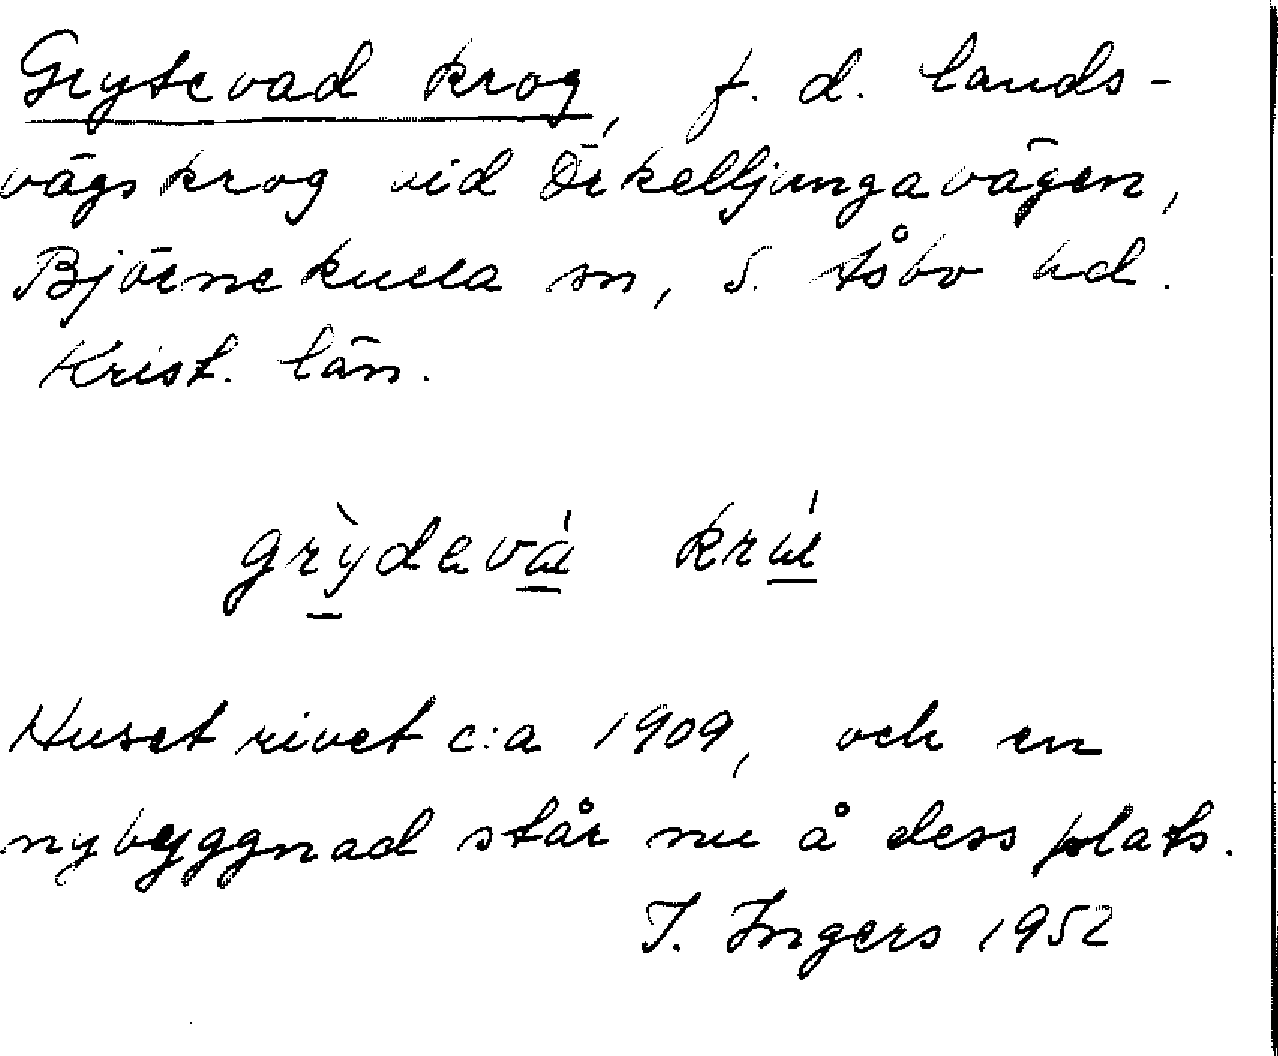 Grytevad krog, f. d. lands-
vägskrog vid Örkelljungavägen,
Björnekulla sn, S. Åsbo hd.
Krist. län.
Huset rivet c:a 1909, och en
nybyggnad står nu å dess plats.
I. Ingers 1952